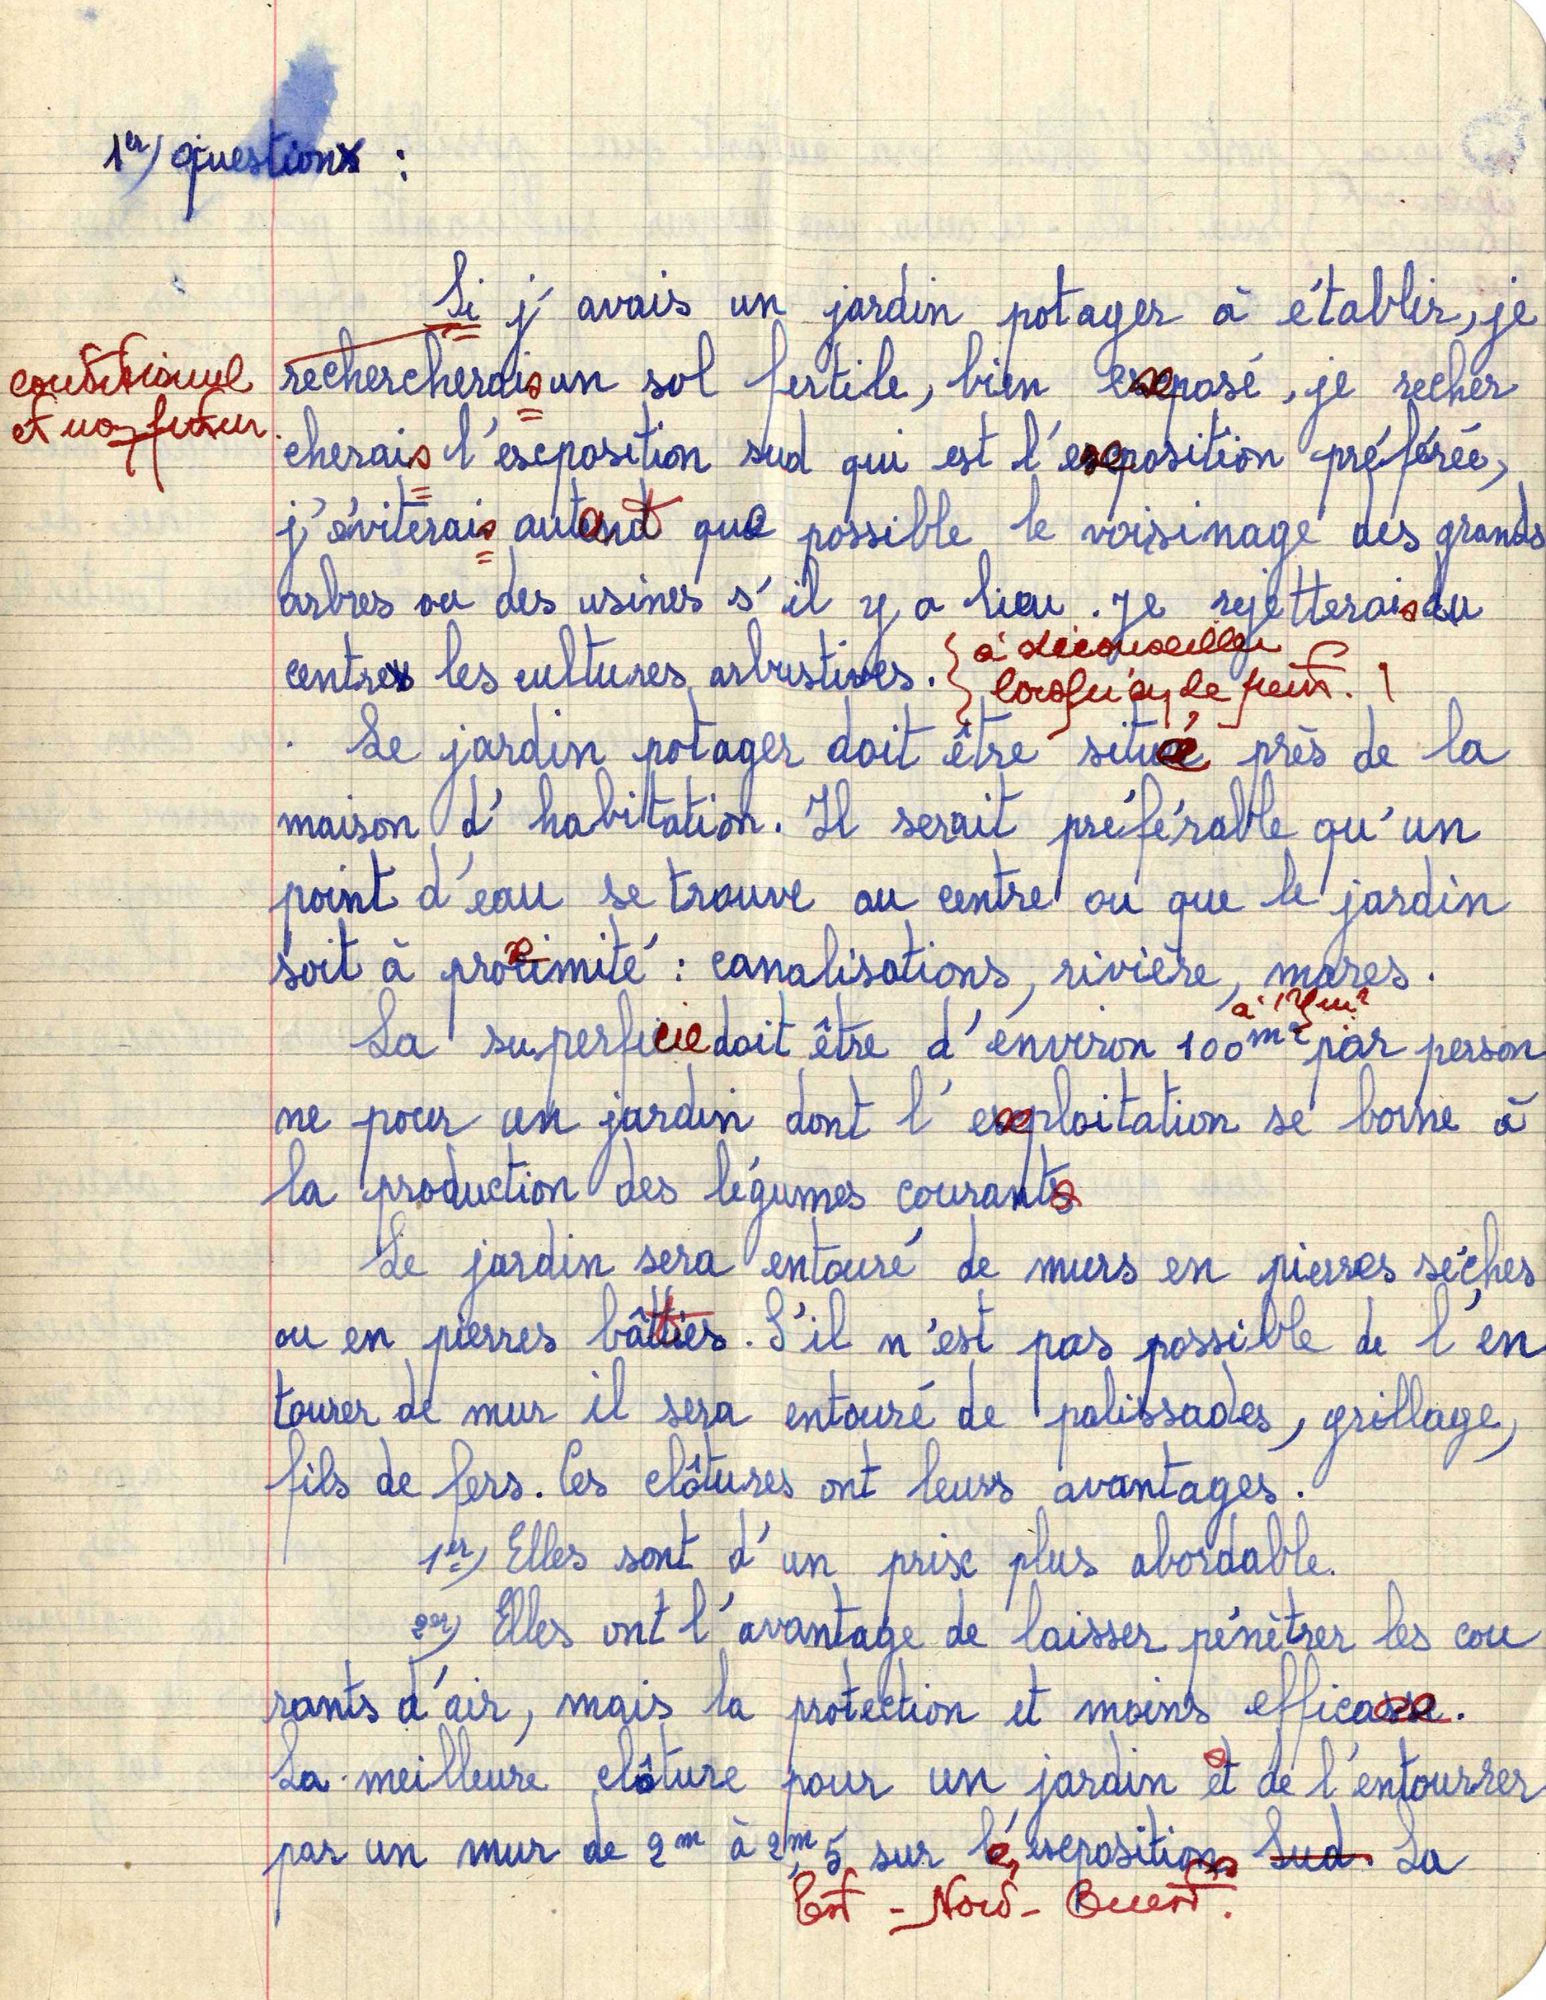 1er) questions :
Si j'avais un jardin potager à établir, je
conditionnel
rechercherais un sol fertile, bien exposé, je recher
et non futur
cherais l'exposition sud qui est l'exposition préférée,
j'éviterais autant que possible le voisinage des grands
arbres ou des usines s'il y a lieu. Je rejetterais du
à déconseiller
centre les cultures arbustives.
Le jardin potager doit être situé près de la
maison d'habitation. Il serait préférable qu'un
point d'eau se trouve au centre ou que le jardin
soit à proximité : canalisations, rivière, mares.
La superficie doit être d'environ 100 m2 par person
ne pour un jardin dont l'exploitation se borne à
la production des légumes courants
Le jardin sera entouré de murs en pierres sèches
ou en pierres bâtties. S'il n'est pas possible de l'en
tourer de mur il sera entouré de palissades, grillage,
fils de fers. Ces clôtures ont leurs avantages.
1er) Elles sont d'un prix plus abordable.
2er) Elles ont l'avantage de laisser pénètrer les cou
rants d'air, mais la protection et moins efficace.
La meilleure clôture pour un jardin est de l'entourrer
par un mur de 2m à 2m,5 sur les expositions Sud. La
Est - Nord - Ouest.